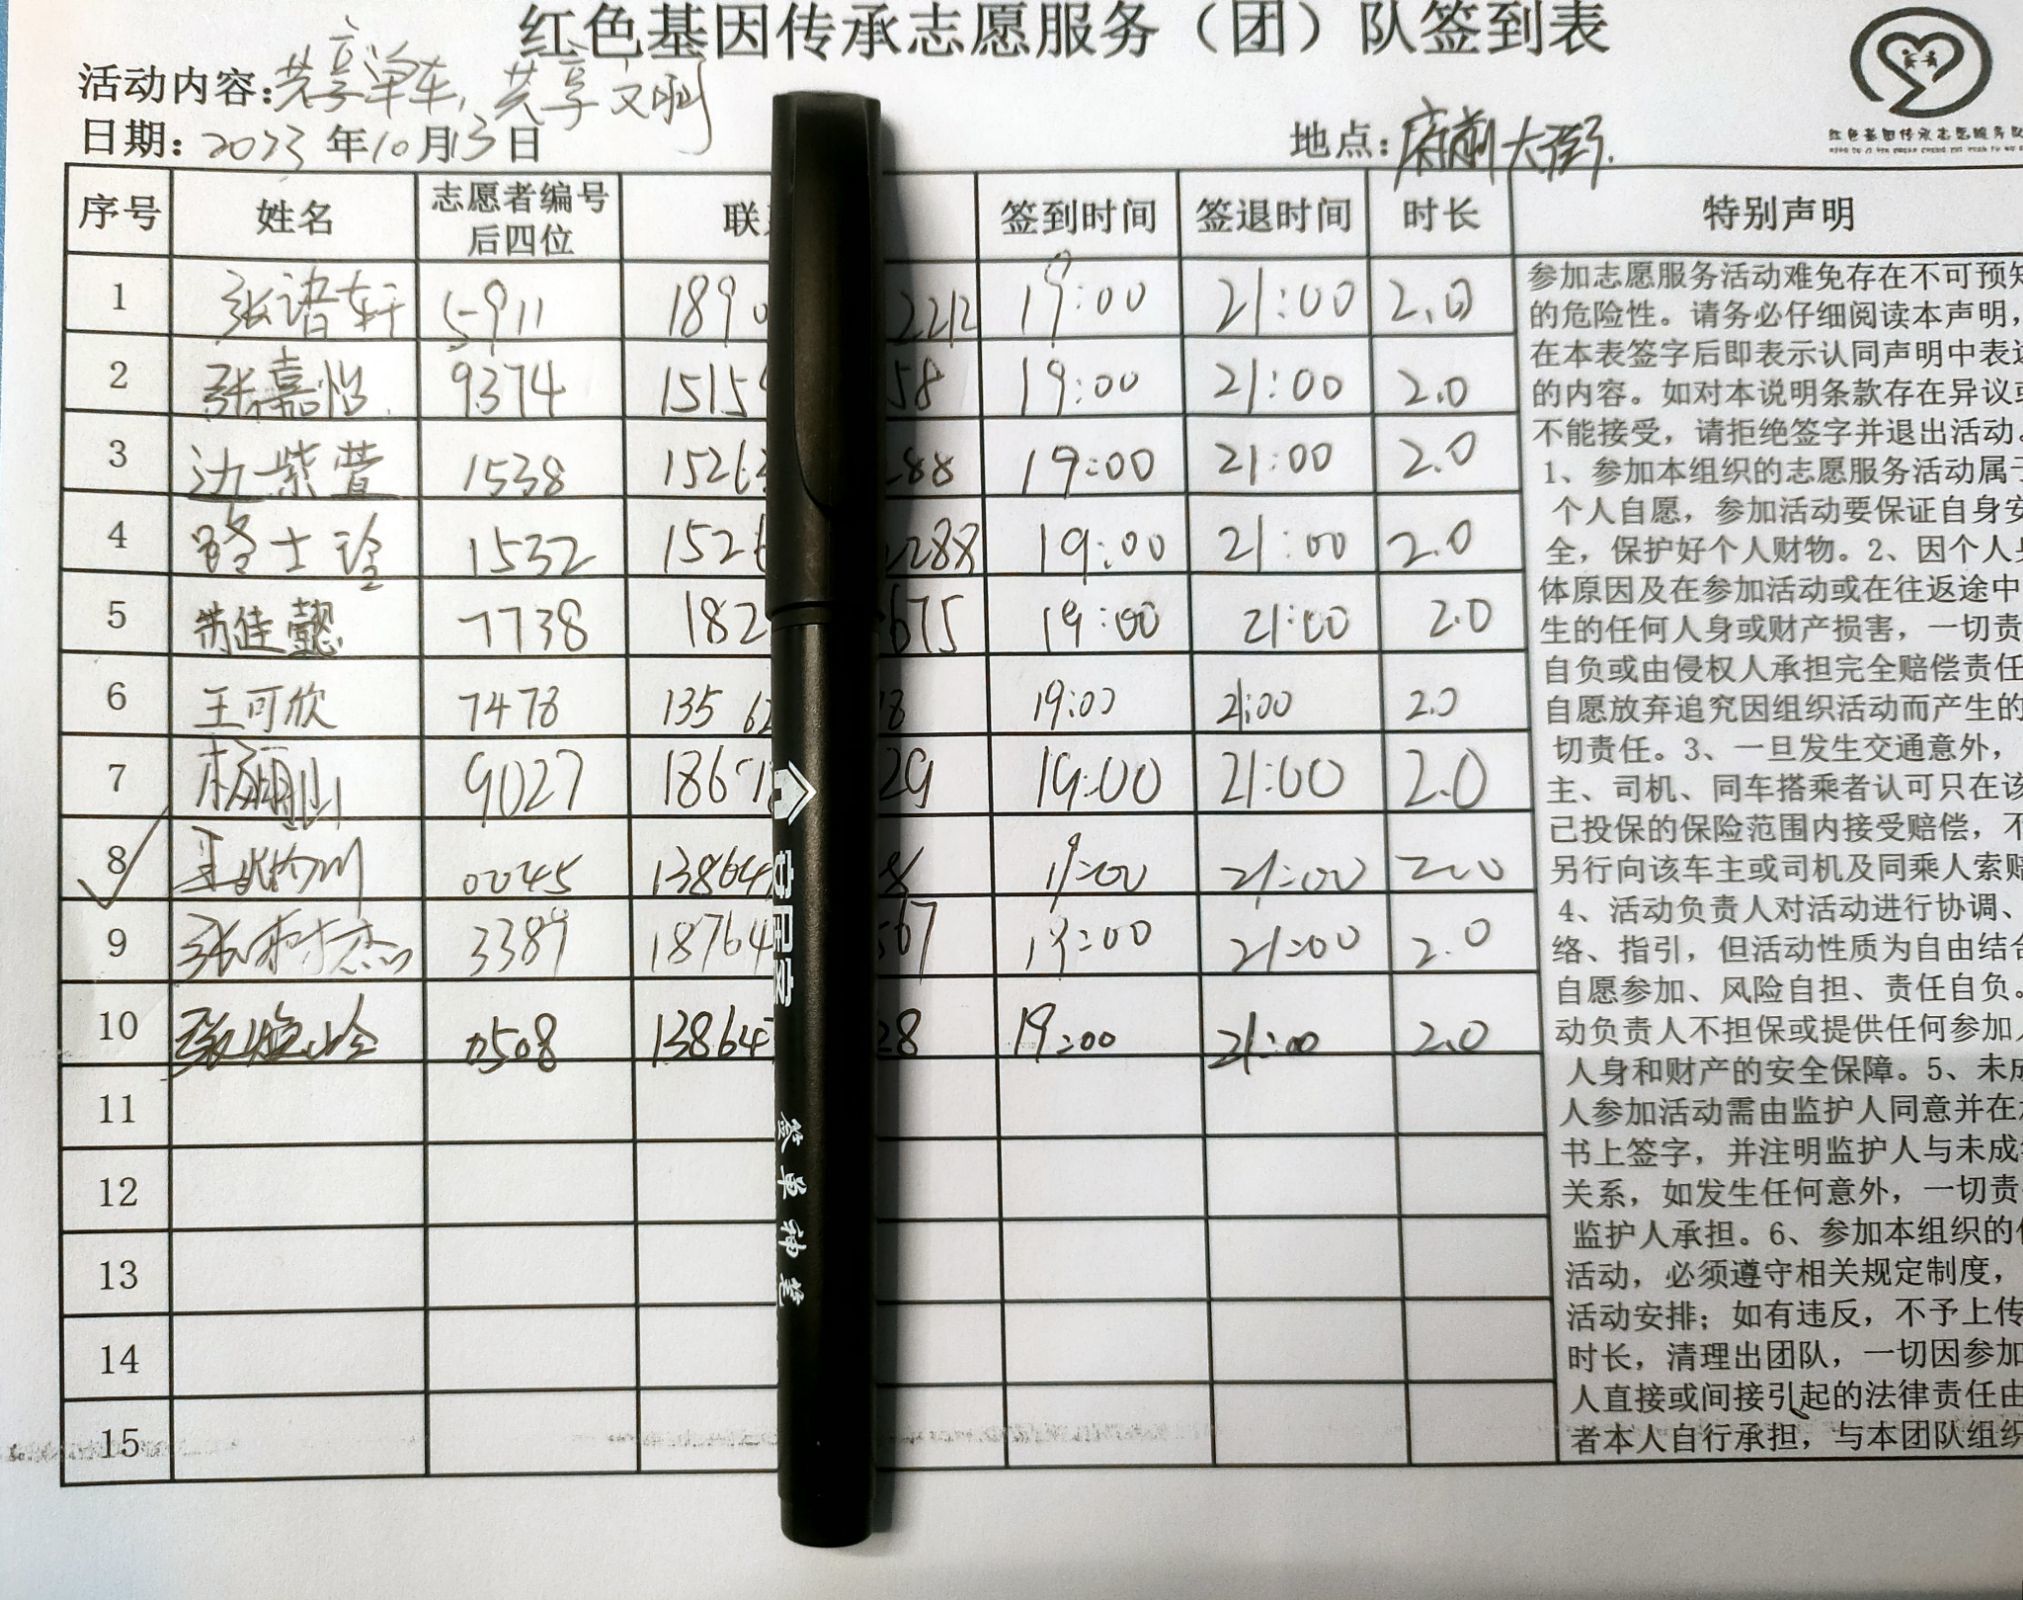 红色基因传承志愿服务（团）队签到表
活动内容：共享单车，共享文明
日期：2023年10月13日 地点：府前大街
红色基因传承志愿服务队
序号 姓名 志愿者编号后四位 联 签到时间 签退时间 时长 特别声明
1 张诸轩 5911 1890 2212 19:00 21:00 2.0
2 张嘉怡 9374 1515 58 19:00 21:00 2.0
3 边紫萱 1538 1526 288 19:00 21:00 2.0
4 路士诠 1532 1526 2288 19:00 21:00 2.0
5 佳懿 7738 182 675 19:00 21:00 2.0
6 王可欣 7478 135 62 8 19:00 21:00 2.0
7 9027 1867 29 19:00 21:00 2.0
8 0045 13864 8 19:00 21:00 2.0
9 张树杰 3389 18764 567 19:00 21:00 2.0
10 0508 13864 28 19:00 21:00 2.0
11
12
13
14
15
参加志愿服务活动难免存在不可预知
的危险性。请务必仔细阅读本声明，
在本表签字后即表示认同声明中表述
的内容。如对本说明条款存在异议或
不能接受，请拒绝签字并退出活动。
1、参加本组织的志愿服务活动属于
个人自愿，参加活动要保证自身安
全，保护好个人财物。2、因个人身
体原因及在参加活动或在往返途中
生的任何人身或财产损害，一切责
自负或由侵权人承担完全赔偿责任
自愿放弃追究因组织活动而产生的
切责任。3、一旦发生交通意外，
主、司机、同车搭乘者认可只在该
已投保的保险范围内接受赔偿，不
另行向该车主或司机及同乘人索赔
4、活动负责人对活动进行协调、
络、指引，但活动性质为自由结合
自愿参加、风险自担、责任自负。
动负责人不担保或提供任何参加人
人身和财产的安全保障。5、未成
人参加活动需由监护人同意并在
书上签字，并注明监护人与未成年
关系，如发生任何意外，一切责
监护人承担。6、参加本组织的
活动，必须遵守相关规定制度，
活动安排；如有违反，不予上传
时长，清理出团队，一切因参加
人直接或间接引起的法律责任由
者本人自行承担，与本团队组织
签单神笔